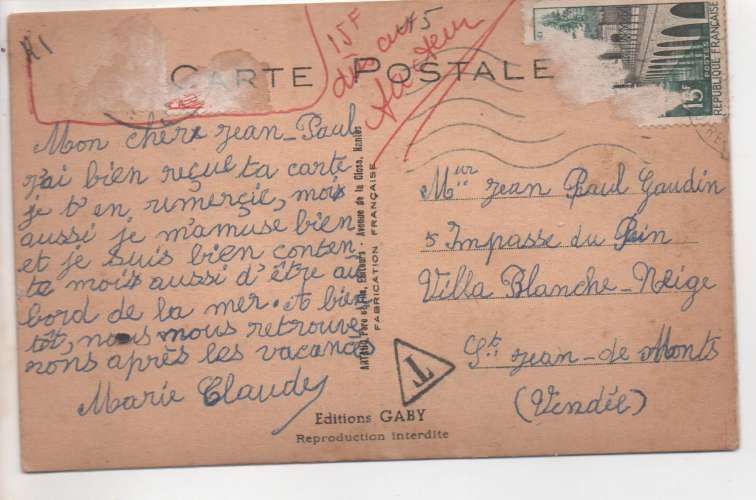 15F
CARTE POSTALE
Mon chère jean-Paul
j'ai bien reçue ta carte
je t'en rumerçie, moi
aussi je m'amuse bien
et je suis bien conten
te moi aussi d'être au
bord de la mer. et bien
tôt, nous nous retrouve
rons après les vacanc
Marie Claude
Artaud Père et Fils, Editeurs - Avenue de la Close, Nantes
FABRICATION FRANÇAISE
T
Editions GABY
Reproduction interdite
15F
POSTES
REPUBLIQUE FRANÇAISE
Mur jean Paul Gaudin
5 Impasse du Pin
Villa Blanche-Neige
St jean-de Monts
(Vendée)